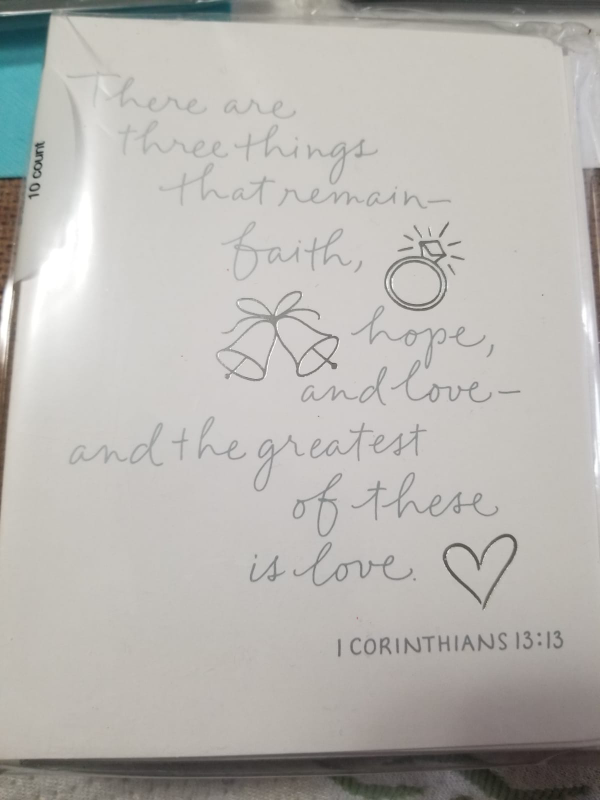 10 count
There are
three things
that remain—
faith,
hope,
and love—
and the greatest
of these
is love.
1 CORINTHIANS 13:13